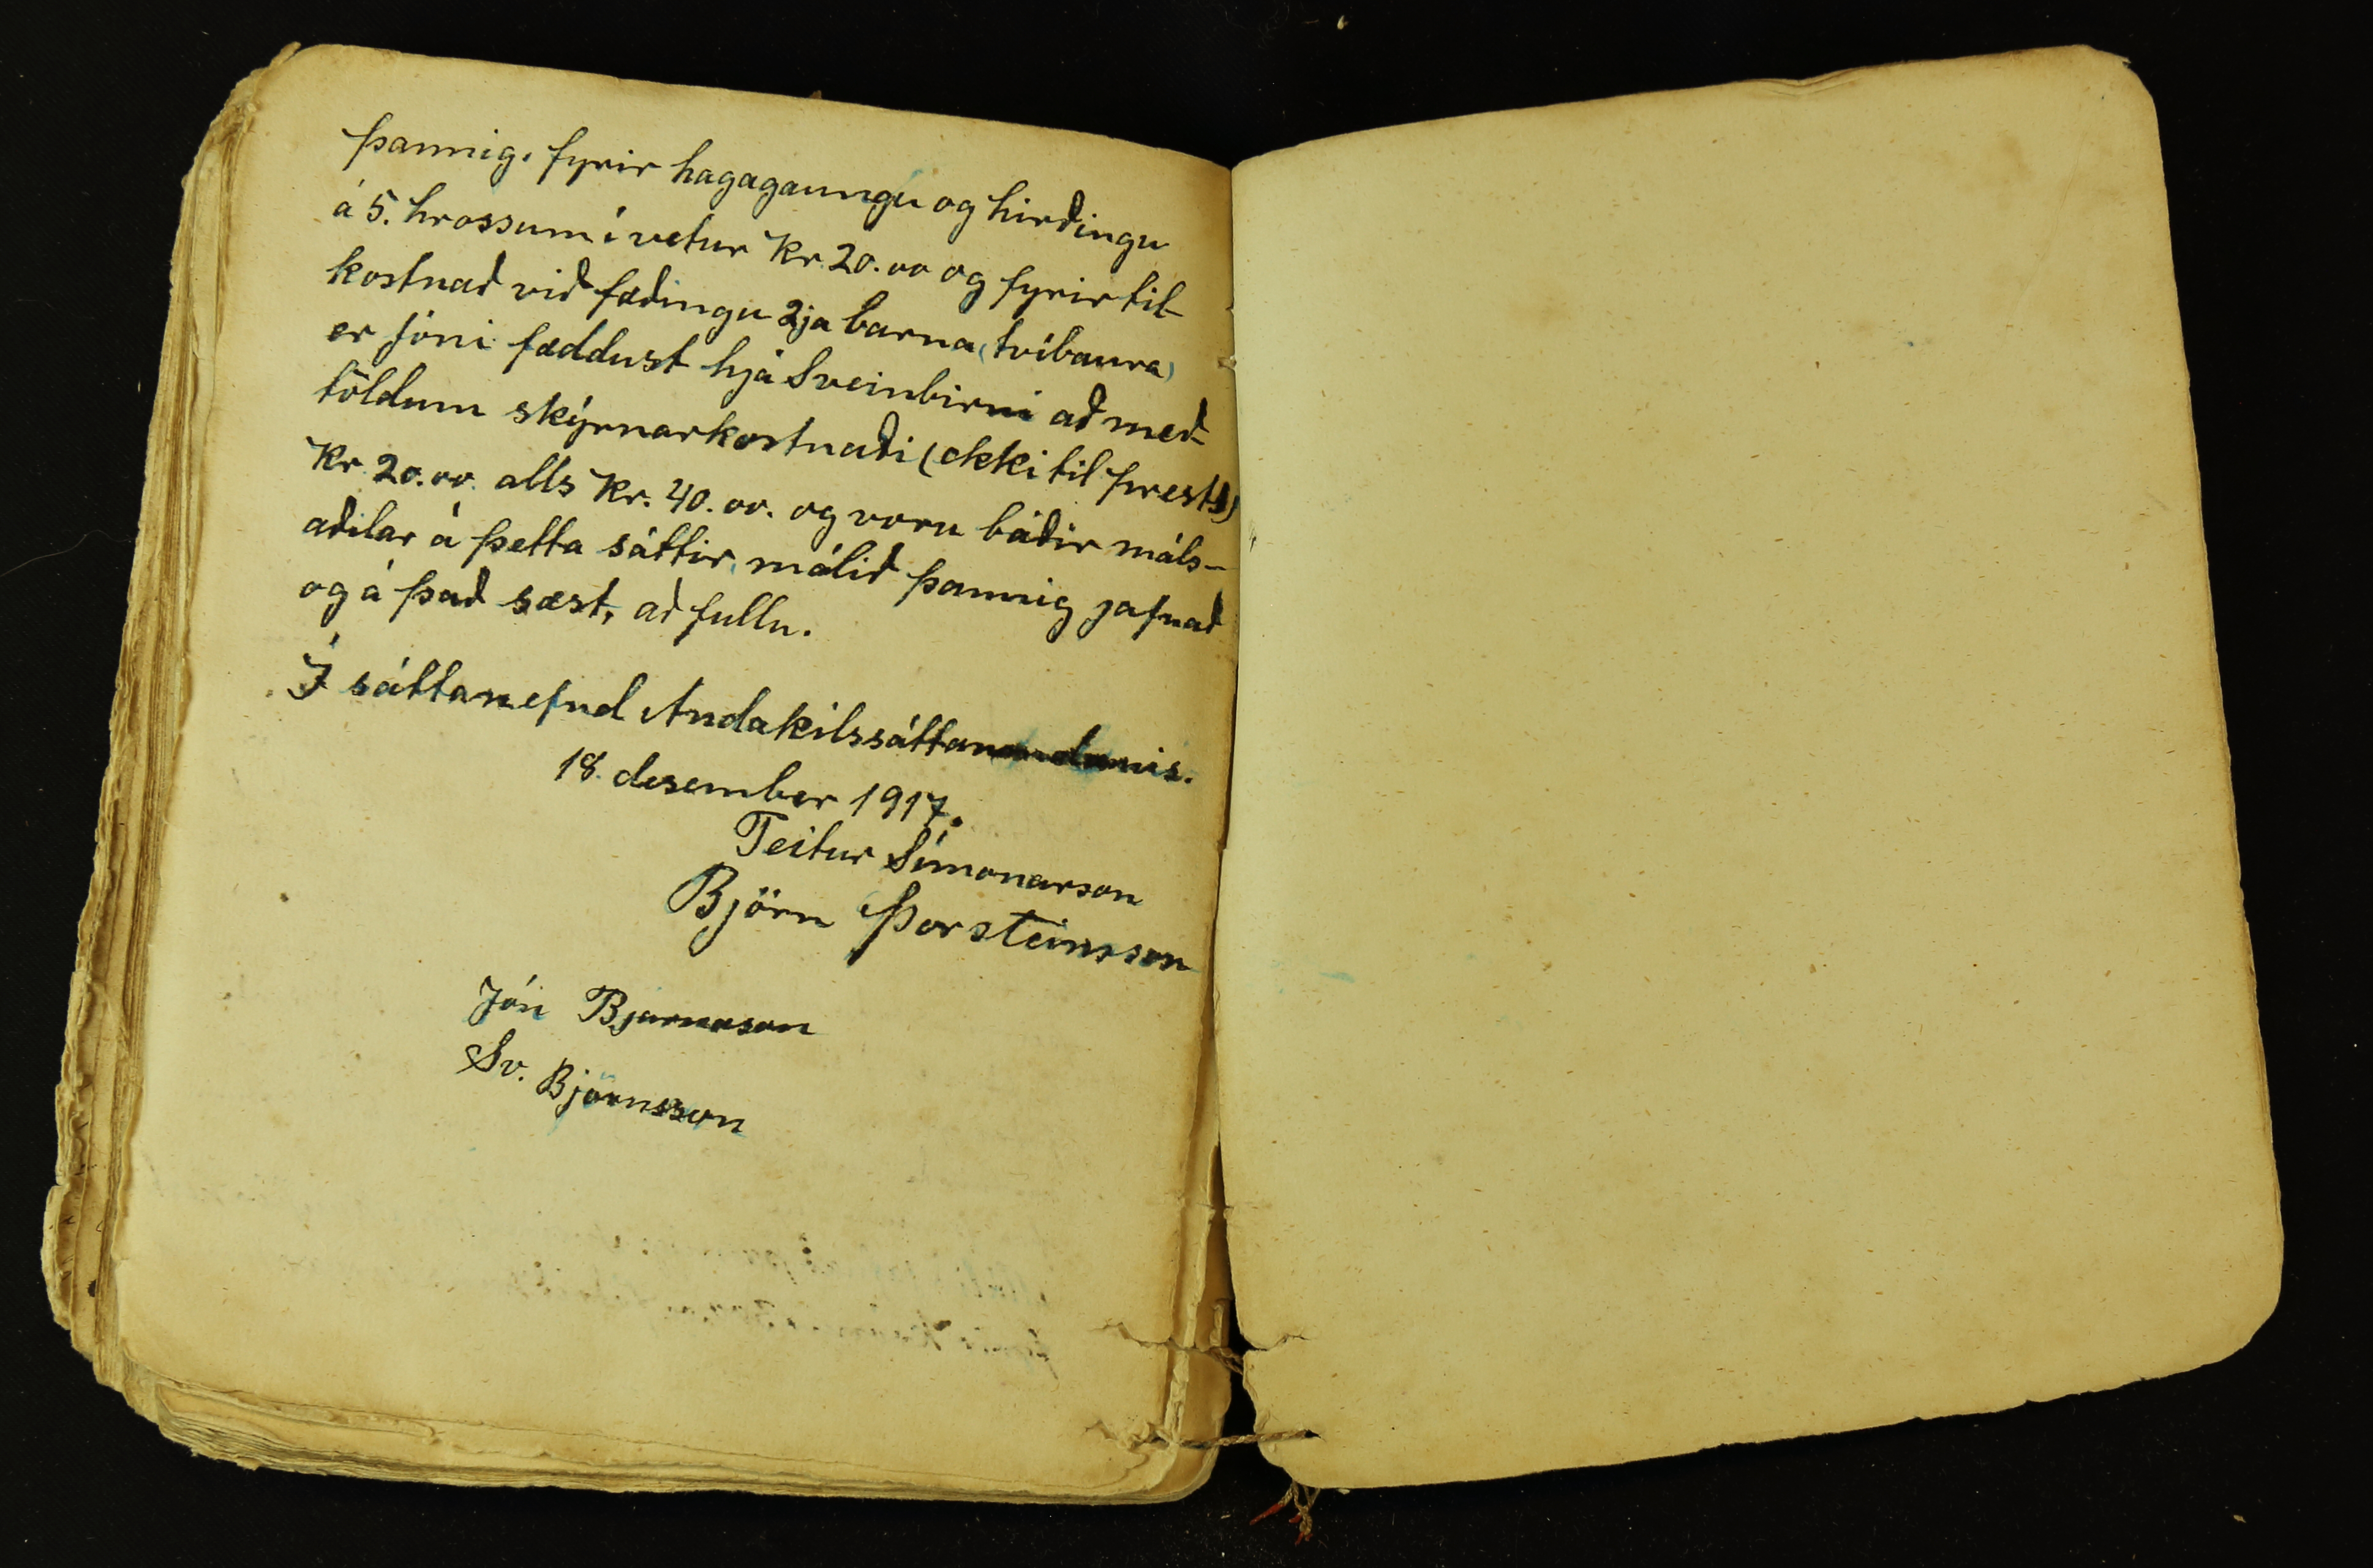 þannig, fyrir hagagaungu og hirðingu
á 5. hrossum í vetur Kr. 20.00 og fyrir til-
kostnað við fæðingu 2ja barna (tvíbaura)
er Jóni fæddust hjá Sveinbirni að með-
töldum skýrnarkostnaði (ekki til prests)
Kr. 20.00. alls Kr. 40.00. og voru báðir máls-
aðilar á þetta sáttir, málið þannig jafnað
og á það sæst, að fullu.
Í sáttanefnd Andakílssáttaumdæmis.
18. desember 1917.
Teitur Símonarson
Björn Þorsteinsson
Jón Bjarnason
Sv. Björnsson